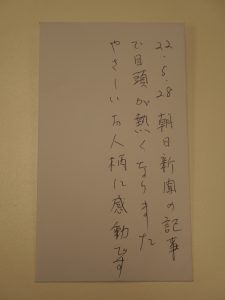 22.5.28 朝日新聞の記事
で目頭が熱くなりました
やさしいお人柄に感動です